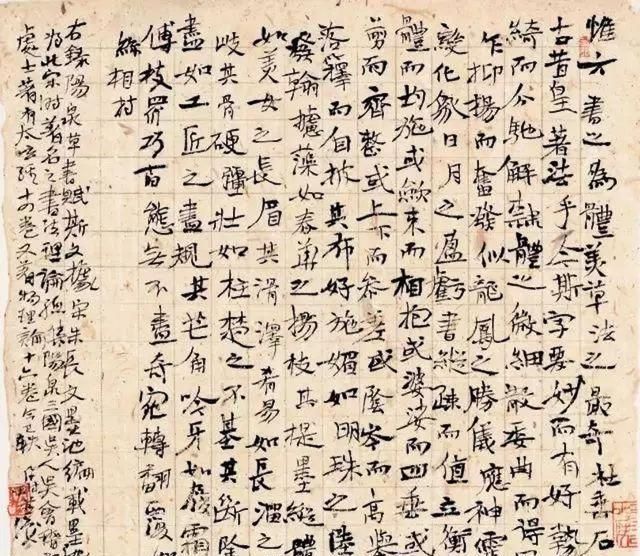 惟六書之為體美草法之最奇杜垂名
古昔皇著法乎今斯字要妙而有好勢
綺而分馳解隸體之微細散委曲而得
乍抑揚而奮發似龍鳳之騰儀應神靈
變化象日月之盈虧書縱竦而值立衡
體而均施或斂束而相抱或婆娑而四垂或
剪而齊整或上下而參差或陰岑而高舉
落籜而自披其布好施媚如明珠之陸
發翰攄藻如春華之楊枝其提墨縱體
如美女之長眉其滑澤肴易如長溜之
岐其骨硬彊壯如柱礎之不基其斷除
盡如工匠之盡規其芒角吟牙如嚴霜
傅枝眾巧百態無不盡奇宛轉翻覆
絲相持
右錄陽泉草書賦斯文據宋朱長文墨池編載墨池
為此宋時著名之書法理論總集陽泉三國吳人吳會稽
處士著有太玄經十四卷又著物理論十六卷今已軼